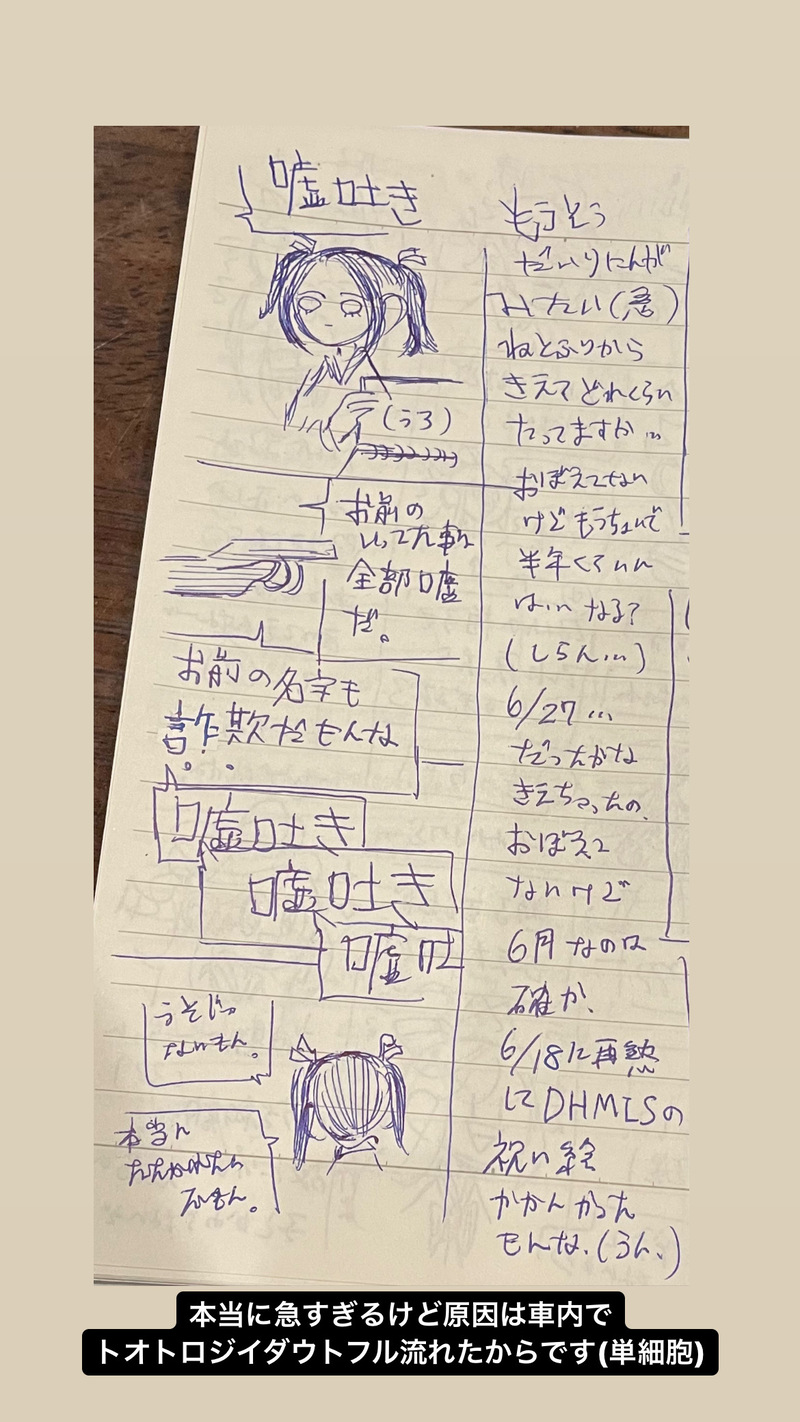 嘘吐き
(うろ)
お前の
いってた事
全部嘘
だ。
お前の名字も
詐欺だもんな
嘘吐き
嘘吐き
嘘吐
うそじゃ
ないもん。
本当に
もん。
もうそう
だいりにんが
みたい(急)
ねとふりから
きえてどれくらい
たってますか…
おぼえてない
けどもうちょいで
半年くらい
なる?
(しらん…)
6/27…
だったかな
きえちゃったの、
おぼえて
ないけど
6月なのは
確か、
6/18に再熱
にDHMISの
祝い絵
かかんかった
もんな、(うん、)
本当に急すぎるけど原因は車内で
トオトロジイダウトフル流れたからです(単細胞)